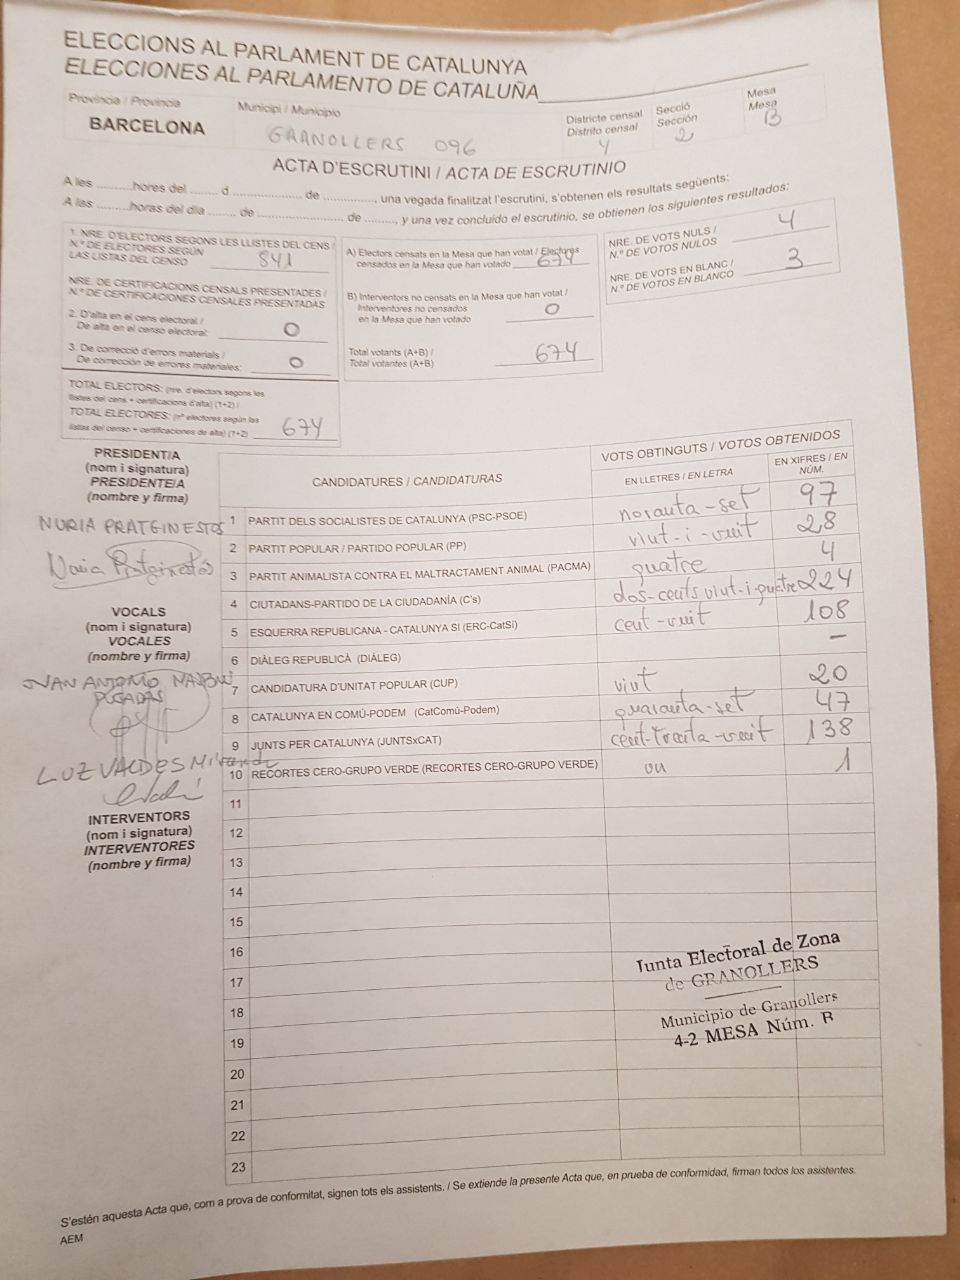 ELECCIONS AL PARLAMENT DE CATALUNYA
ELECCIONES AL PARLAMENTO DE CATALUÑA
Província / Provincia
BARCELONA
Municipi / Municipio
GRANOLLERS 096
Districte censal
Distrito censal
4
Secció
Sección
2
Mesa
Mesa
B
ACTA D'ESCRUTINI / ACTA DE ESCRUTINIO
A les ..........hores del ........ d ................... de .............., una vegada finalitzat l'escrutini, s'obtenen els resultats següents:
A las ..........horas del día ........ de ....................... de ........, y una vez concluido el escrutinio, se obtienen los siguientes resultados:
1. NRE. D'ELECTORS SEGONS LES LLISTES DEL CENS /
N.º DE ELECTORES SEGÚN
LAS LISTAS DEL CENSO
841
NRE. DE CERTIFICACIONS CENSALS PRESENTADES /
N.º DE CERTIFICACIONES CENSALES PRESENTADAS
2. D'alta en el cens electoral /
De alta en el censo electoral:
0
3. De correcció d'errors materials /
De corrección de errores materiales:
0
TOTAL ELECTORS: (nre. d'electors segons les
llistes del cens + certificacions d'alta) (1+2) /
TOTAL ELECTORES: (nº electores según las
listas del censo + certificaciones de alta) (1+2)
674
A) Electors censats en la Mesa que han votat / Electores
censados en la Mesa que han votado
674
B) Interventors no censats en la Mesa que han votat /
Interventores no censados
en la Mesa que han votado
0
Total votants (A+B) /
Total votantes (A+B)
674
NRE. DE VOTS NULS /
N.º DE VOTOS NULOS
4
NRE. DE VOTS EN BLANC /
N.º DE VOTOS EN BLANCO
3
PRESIDENT/A
(nom i signatura)
PRESIDENTE/A
(nombre y firma)
NURIA PRATGINESTOS
Nuria Pratginestós
VOCALS
(nom i signatura)
VOCALES
(nombre y firma)
JUAN ANTONIO
LUZ VALDES
INTERVENTORS
(nom i signatura)
INTERVENTORES
(nombre y firma)
CANDIDATURES / CANDIDATURAS
VOTS OBTINGUTS / VOTOS OBTENIDOS
EN LLETRES / EN LETRA
EN XIFRES / EN NÚM.
1 PARTIT DELS SOCIALISTES DE CATALUNYA (PSC-PSOE) noranta-set 97
2 PARTIT POPULAR / PARTIDO POPULAR (PP) vint-i-vuit 28
3 PARTIT ANIMALISTA CONTRA EL MALTRACTAMENT ANIMAL (PACMA) quatre 4
4 CIUTADANS-PARTIDO DE LA CIUDADANÍA (C's) dos-cents vint-i-quatre 224
5 ESQUERRA REPUBLICANA - CATALUNYA SI (ERC-CatSí) cent-vuit 108
6 DIÀLEG REPUBLICÀ (DIÀLEG) –
7 CANDIDATURA D'UNITAT POPULAR (CUP) vint 20
8 CATALUNYA EN COMÚ-PODEM (CatComú-Podem) quaranta-set 47
9 JUNTS PER CATALUNYA (JUNTSxCAT) cent-trenta-vuit 138
10 RECORTES CERO-GRUPO VERDE (RECORTES CERO-GRUPO VERDE) un 1
11
12
13
14
15
16
17
18
19
20
21
22
23
Junta Electoral de Zona
de GRANOLLERS
Municipio de Granollers
4-2 MESA Núm. B
S'estén aquesta Acta que, com a prova de conformitat, signen tots els assistents. / Se extiende la presente Acta que, en prueba de conformidad, firman todos los asistentes.
AEM